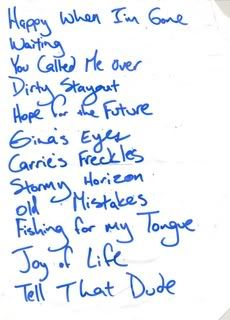 Happy When I'm Gone
Waiting
You Called Me over
Dirty Stayout
Hope for the Future
Gina's Eyes
Carrie's Freckles
Stormy Horizon
Old Mistakes
Fishing for my Tongue
Joy of Life
Tell That Dude